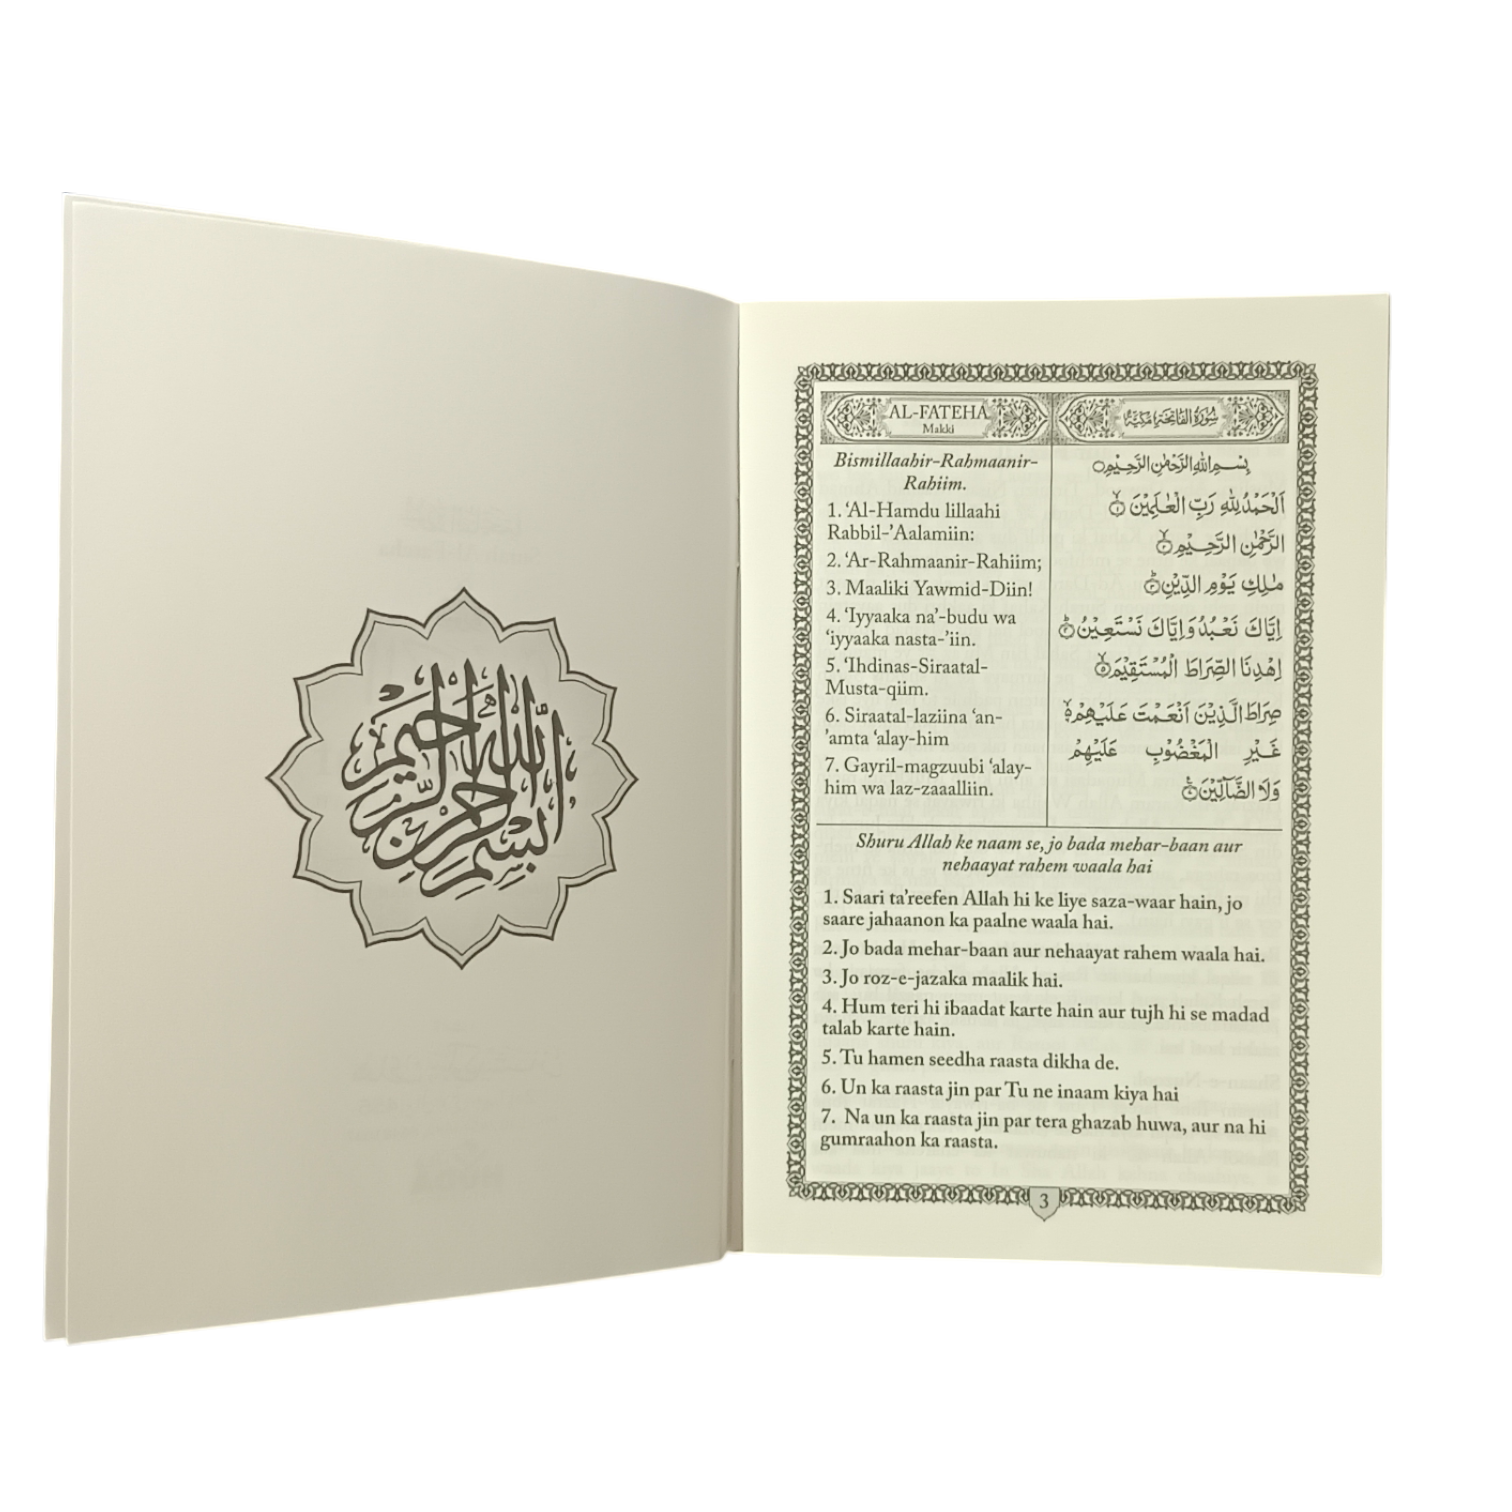 بسم الله الرحمن الرحيم
AL-FATEHA
Makki
سُوْرَةُ الْفَاتِحَةِ مَكِّيَّةٌ
Bismillaahir-Rahmaanir-
Rahiim.
1. ‘Al-Hamdu lillaahi
Rabbil-’Aalamiin:
2. ‘Ar-Rahmaanir-Rahiim;
3. Maaliki Yawmid-Diin!
4. ‘Iyyaaka na’-budu wa
‘iyyaaka nasta-’iin.
5. ‘Ihdinas-Siraatal-
Musta-qiim.
6. Siraatal-laziina ‘an-
’amta ‘alay-him
7. Gayril-magzuubi ‘alay-
him wa laz-zaaalliin.
بِسْمِ اللهِ الرَّحْمٰنِ الرَّحِيْمِ
اَلْحَمْدُ لِلّٰهِ رَبِّ الْعٰلَمِيْنَ ۙ۝١
الرَّحْمٰنِ الرَّحِيْمِ ۙ۝٢
مٰلِكِ يَوْمِ الدِّيْنِ ؕ۝٣
اِيَّاكَ نَعْبُدُ وَاِيَّاكَ نَسْتَعِيْنُ ؕ۝٤
اِهْدِنَا الصِّرَاطَ الْمُسْتَقِيْمَ ۙ۝٥
صِرَاطَ الَّذِيْنَ اَنْعَمْتَ عَلَيْهِمْ ۙ۝٦
غَيْرِ الْمَغْضُوْبِ عَلَيْهِمْ
وَلَا الضَّآلِّيْنَ ۝٧
Shuru Allah ke naam se, jo bada mehar-baan aur
nehaayat rahem waala hai
1. Saari ta’reefen Allah hi ke liye saza-waar hain, jo
saare jahaanon ka paalne waala hai.
2. Jo bada mehar-baan aur nehaayat rahem waala hai.
3. Jo roz-e-jazaka maalik hai.
4. Hum teri hi ibaadat karte hain aur tujh hi se madad
talab karte hain.
5. Tu hamen seedha raasta dikha de.
6. Un ka raasta jin par Tu ne inaam kiya hai
7. Na un ka raasta jin par tera ghazab huwa, aur na hi
gumraahon ka raasta.
3